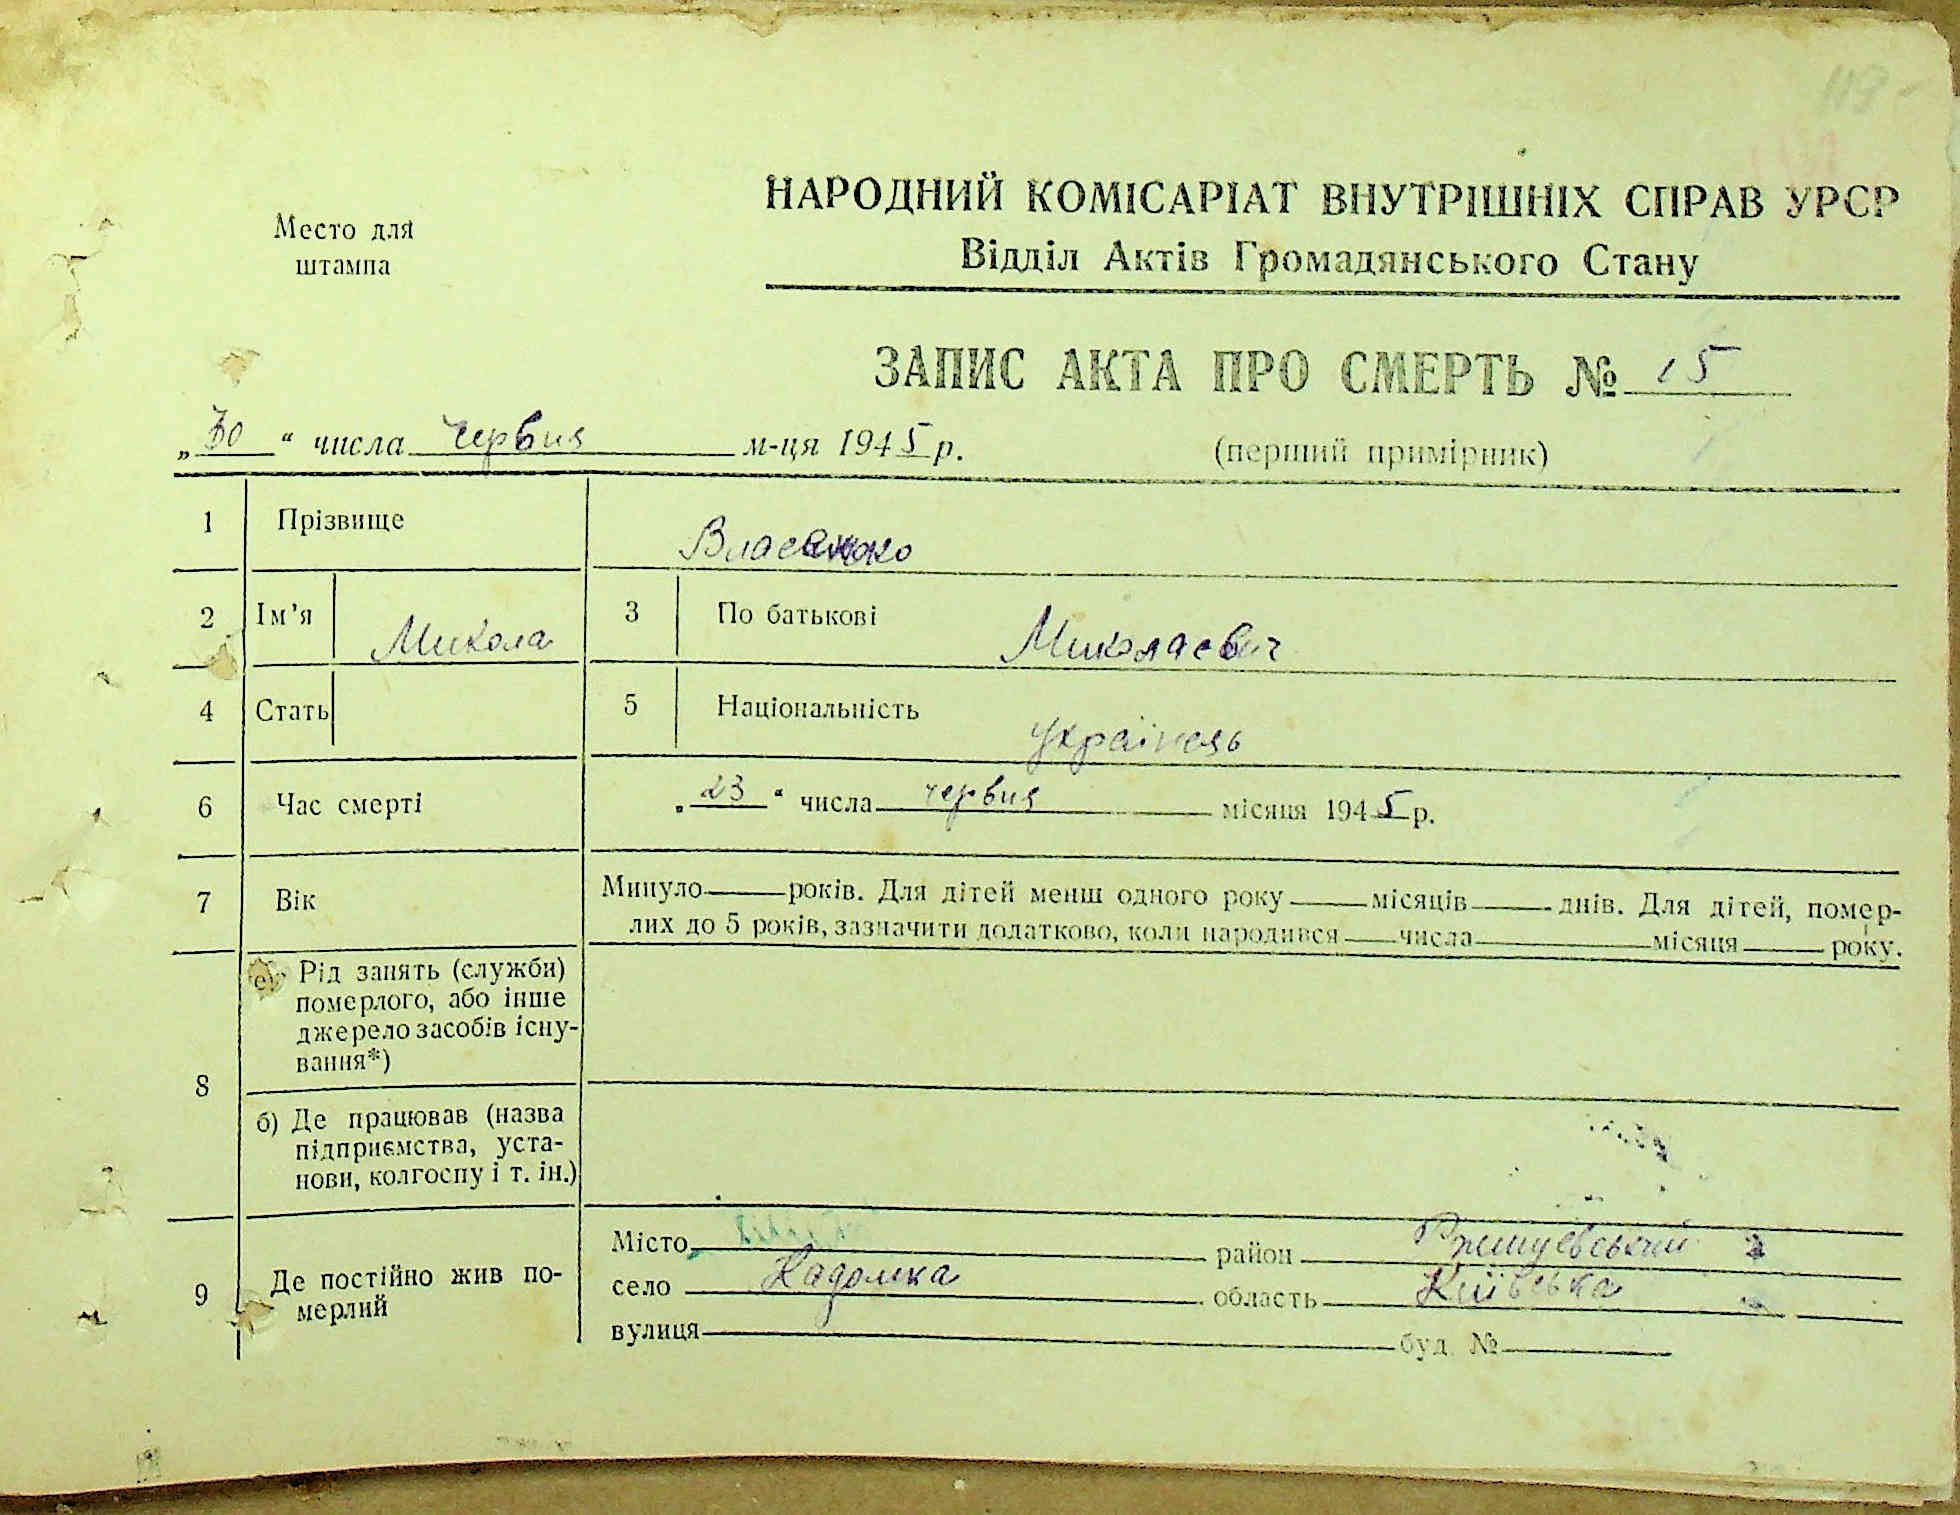 119
Место для
штампа
НАРОДНИЙ КОМІСАРІАТ ВНУТРІШНІХ СПРАВ УРСР
Відділ Актів Громадянського Стану
ЗАПИС АКТА ПРО СМЕРТЬ № 15
„30“ числа червня м-ця 1945 р.
(перший примірник)
1 Прізвище Власенко
2 Ім'я Микола 3 По батькові Миколаевич
4 Стать 5 Національність українець
6 Час смерті „23“ числа червня місяця 1945 р.
7 Вік Минуло років. Для дітей менш одного року місяців днів. Для дітей, помер-
лих до 5 років, зазначити додатково, коли народився числа місяця року.
8 Рід занять (служби)
померлого, або інше
джерело засобів існу-
вання*)
б) Де працював (назва
підприємства, уста-
нови, колгоспу і т. ін.)
9 Де постійно жив по-
мерлий
Місто район
село область Київська
вулиця буд. №